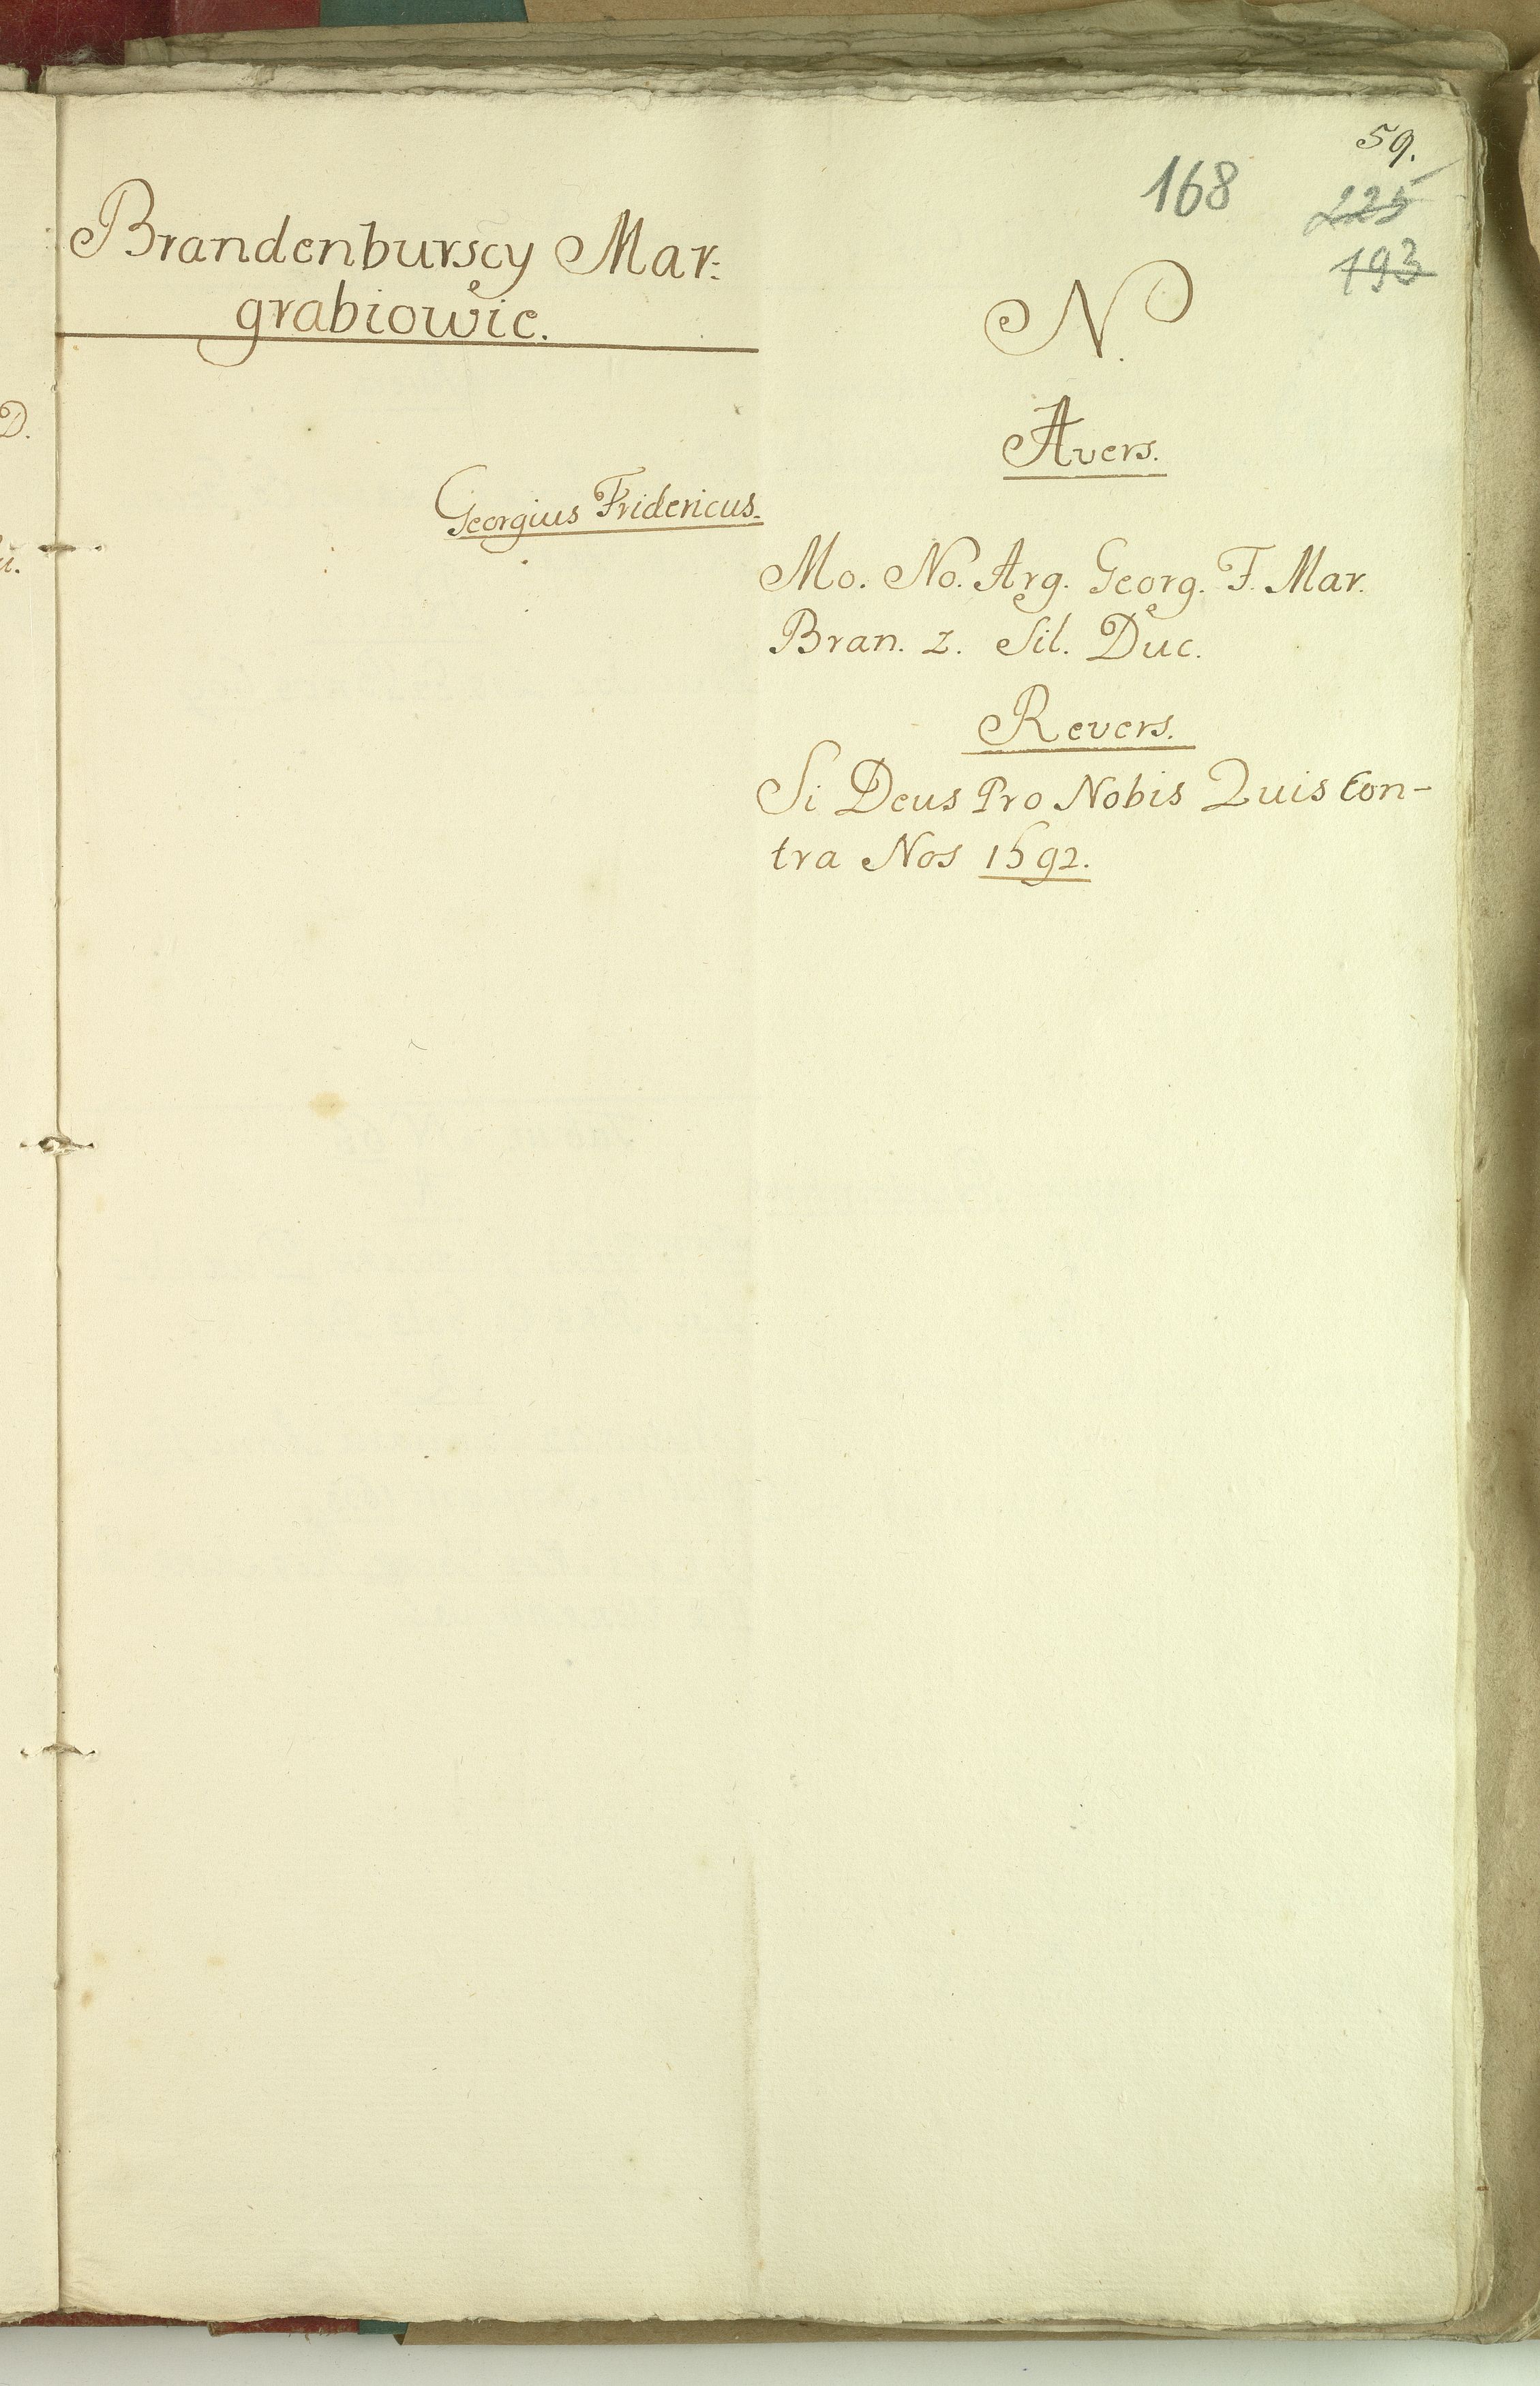 59.
168
225
193
Brandenburscy Mar:
grabiowie.
N.
Avers.
Georgius Fridericus.
Mo. No. Arg. Georg. F. Mar.
Bran. z. Sil. Duc.
Revers.
Si Deus Pro Nobis Quis Con-
tra Nos 1592.
D.